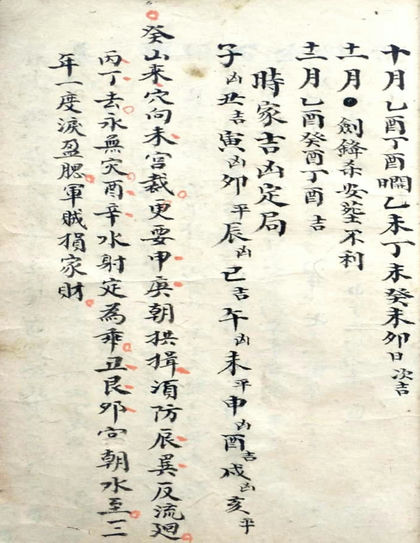 十月乙酉丁酉乙未丁未癸未卯日次吉
十一月●劍鋒杀安葬不利
十二月乙酉癸酉丁酉吉
時家吉凶定局
子凶丑吉寅凶卯平辰凶巳吉午凶未平申凶酉吉戌凶亥平
癸山来穴向未宫裁更要申庚朝拱揖須防辰巽反流廻
丙丁去永無灾酉辛水射定為乖丑艮卯宫朝水至三
年一度淚盈腮軍賊損家財